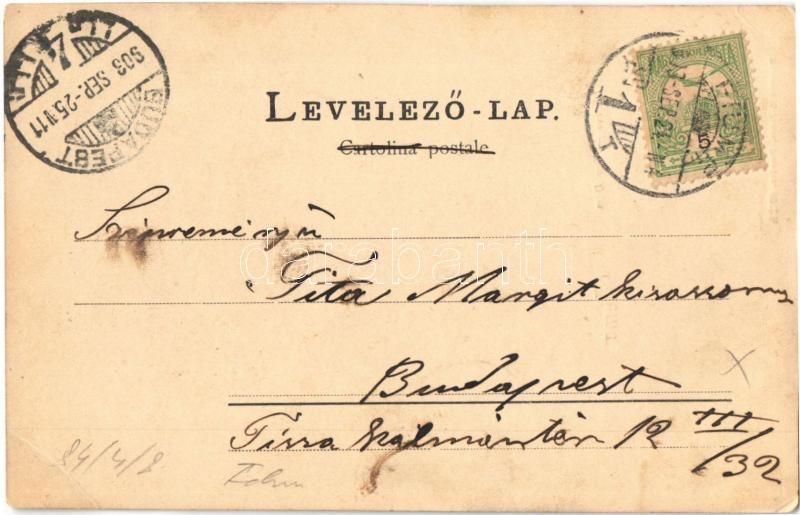 903 SEP. 25. V 11
BUDAPEST
7
5
LEVELEZŐ-LAP.
Cartolina postale
darabanth
Tita Margit kisasszony
Budapest
Tisza Kálmán tér 12 III/32
84/4/8